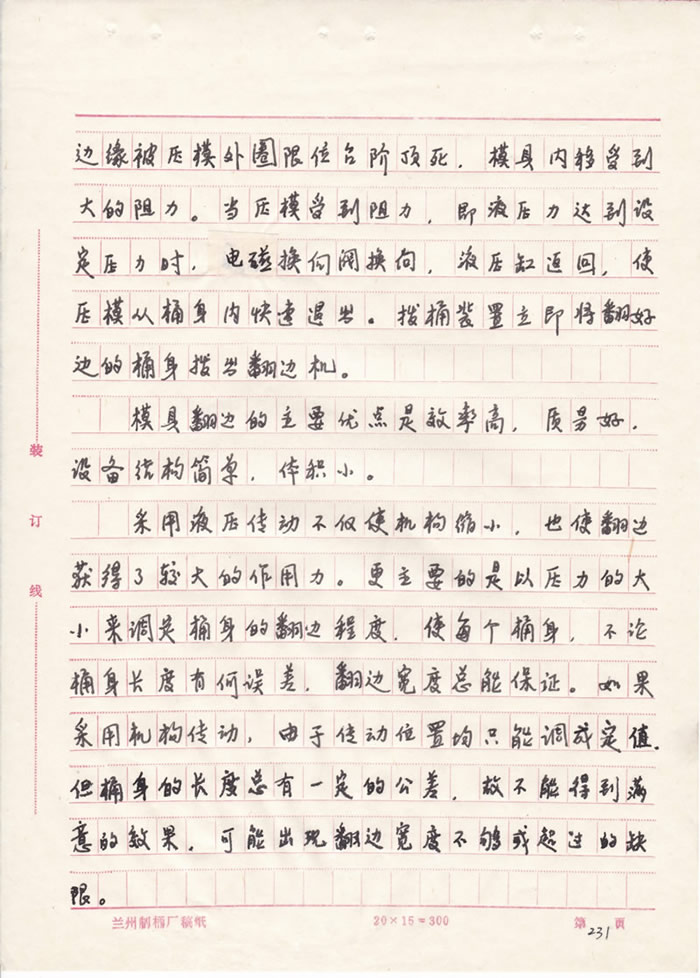 边缘被压模外圈限位台阶顶死，模具内移受到
大的阻力。当压模受到阻力，即液压力达到设
定压力时，电磁换向阀换向，液压缸返回，使
压模从桶身内快速退出。拨桶装置立即将翻好
边的桶身拨出翻边机。
模具翻边的主要优点是效率高，质量好，
设备结构简单，体积小。
采用液压传动不仅使机构缩小，也使翻边
获得了较大的作用力。更主要的是以压力的大
小来调定桶身的翻边程度，使每个桶身，不论
桶身长度有何误差，翻边宽度总能保证。如果
采用机构传动，由于传动位置均只能调成定值，
但桶身的长度总有一定的公差，故不能得到满
意的效果，可能出现翻边宽度不够或超过的缺
限。
装
订
线
兰州制桶厂稿纸 20×15=300 第231页